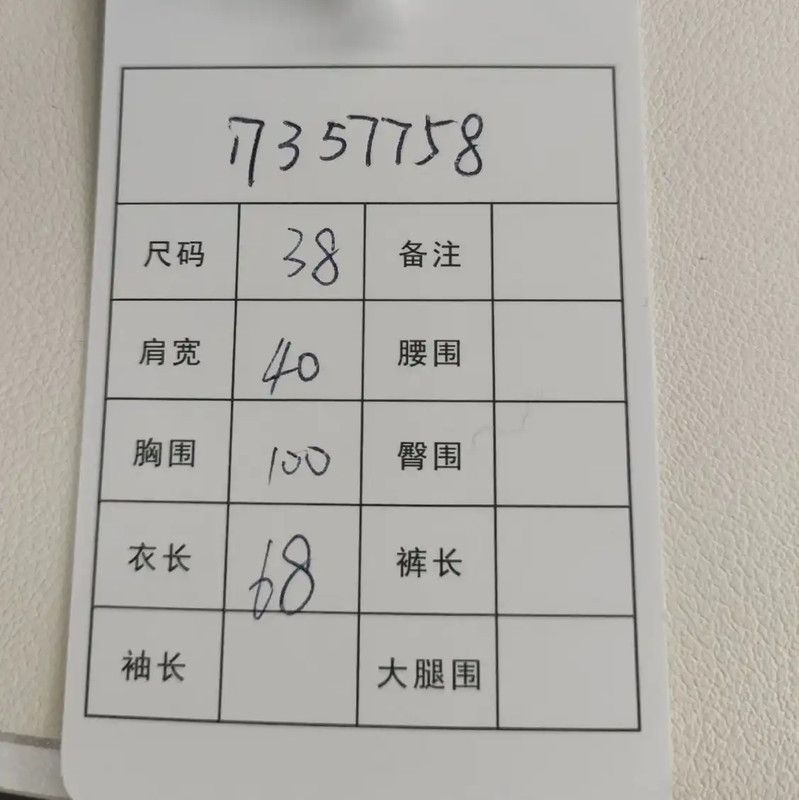 17357758
尺码 38 备注
肩宽 40 腰围
胸围 100 臀围
衣长 68 裤长
袖长 大腿围